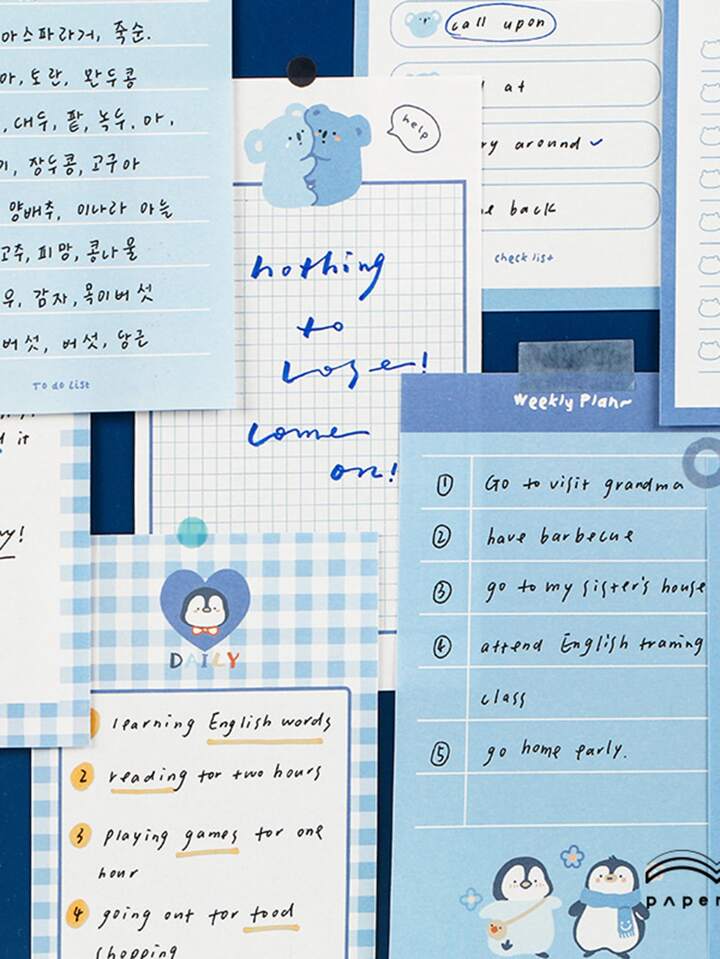 아스파라거, 죽순.
아, 토란, 완두콩
, 대두, 팥, 녹두, 아,
기, 장두콩, 고구아
양배추, 이나라 아늘
고추, 피망, 콩나물
우, 감자, 목이버섯
버섯, 버섯, 당근
To do List
call upon
at
around
back
check list
help
nothing
to
Lose!
come
on!
Weekly Plan~
① Go to visit grandma
② have barbecue
③ go to my sister's house
④ attend English traming
class
⑤ go home early.
it
DAILY
learning English words
2 reading for two hours
3 playing games for one
hour
4 going out for food
shopping
paper